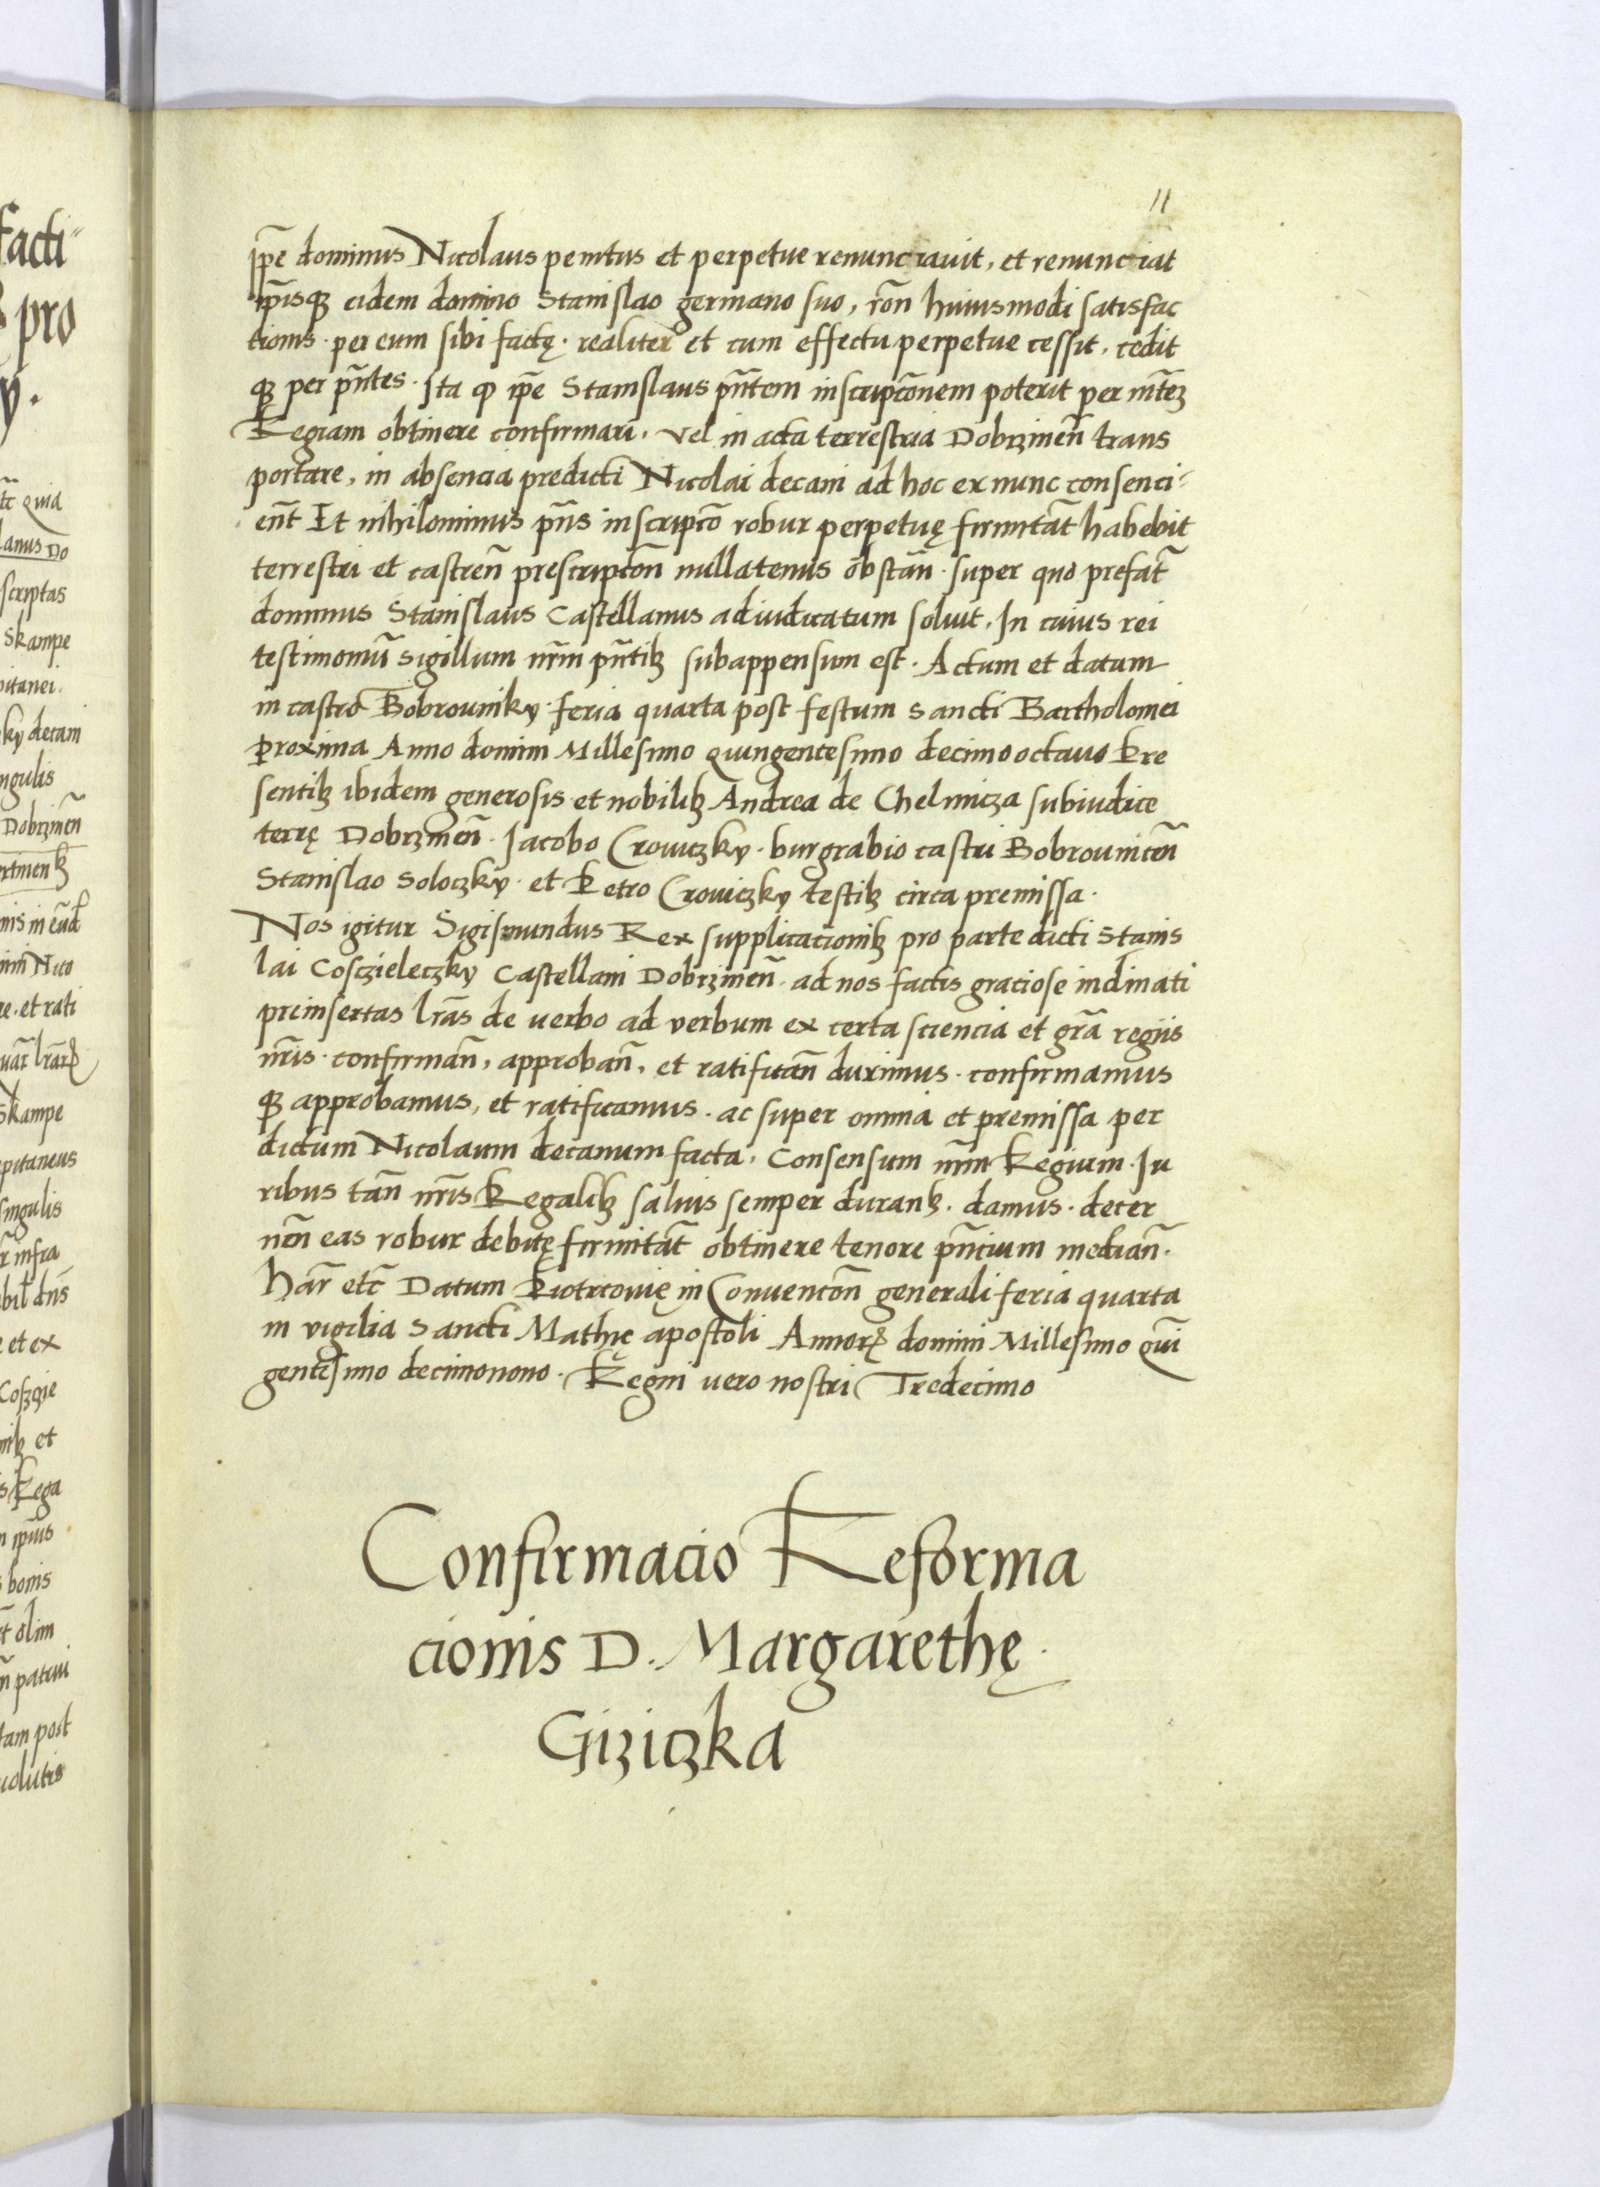 11
ip̃e dominus Nicolaus penitus et perpetue renunciauit, et renunciat
ip̃isqȝ eidem domino Stanislao germano suo, rõn huiusmodi satisfac
tionis · per eum sibi factę · realiter et cum effectu perpetue cessit, cedit
qȝ per pñtes · Ita ꝙ ip̃e Stanislaus pñtem inscripc̃onem poterit per mt̃eȝ
Regiam obtinere confirmari, vel in acta terrestria Dobrzineñ trans
portare, in absencia predicti Nicolai decani ad hoc ex nunc consenci-
eñt Et nihilominus pñs inscripc̃o robur perpetuę firmitat̃ habebit
terrestri et castreñ prescripc̃oñ nullatenus obstañ · super quo prefat̃
dominus Stanislaus Castellanus adiudicatum soluit, In cuius rei
testimoniũ sigillum nr̃m pñtibȝ subappensum est · Actum et datum
in castro Bobrouniky feria quarta post festum sancti Bartholomei
proxima Anno domini Millesimo quingentesimo decimooctauo Pre
sentibȝ ibidem generosis et nobilibȝ Andrea de Chelmicza subiudice
terrę Dobrzineñ · Jacobo Crouiczky · burgrabio castri Bobrouniceñ
Stanislao Soloczky · et Petro Crouiczky testibȝ circa premissa ·
Nos igitur Sigismundus Rex supplicacionibȝ pro parte dicti Stanis
lai Cosczieleczky Castellani Dobrzineñ · ad nos factis graciose inclinati
preinsertas lr̃as de uerbo ad verbum ex certa sciencia et gr̃a regiis
nr̃is · confirmañ, approbañ, et ratificañ duximus · confirmamus
qȝ approbamus, et ratificamus · ac super omnia et premissa per
dictum Nicolaum decanum facta, Consensum nr̃m Regium · Iu
ribus tañ nr̃is Regalibȝ saluis semper durantibȝ · damus · decer
neñ eas robur debitę firmitat̃ obtinere tenore pñcium mediañ ·
Har̃ etc̃ Datum Piotrcouię in Conuenc̃oñ generali feria quarta
in vigilia Sancti Mathię apostoli Annorꝝ domini Millesimo quĩ
gentesimo decimonono · Regni uero nostri Tredecimo
Confirmacio Reforma
cionis D. Margarethę
Giziczka